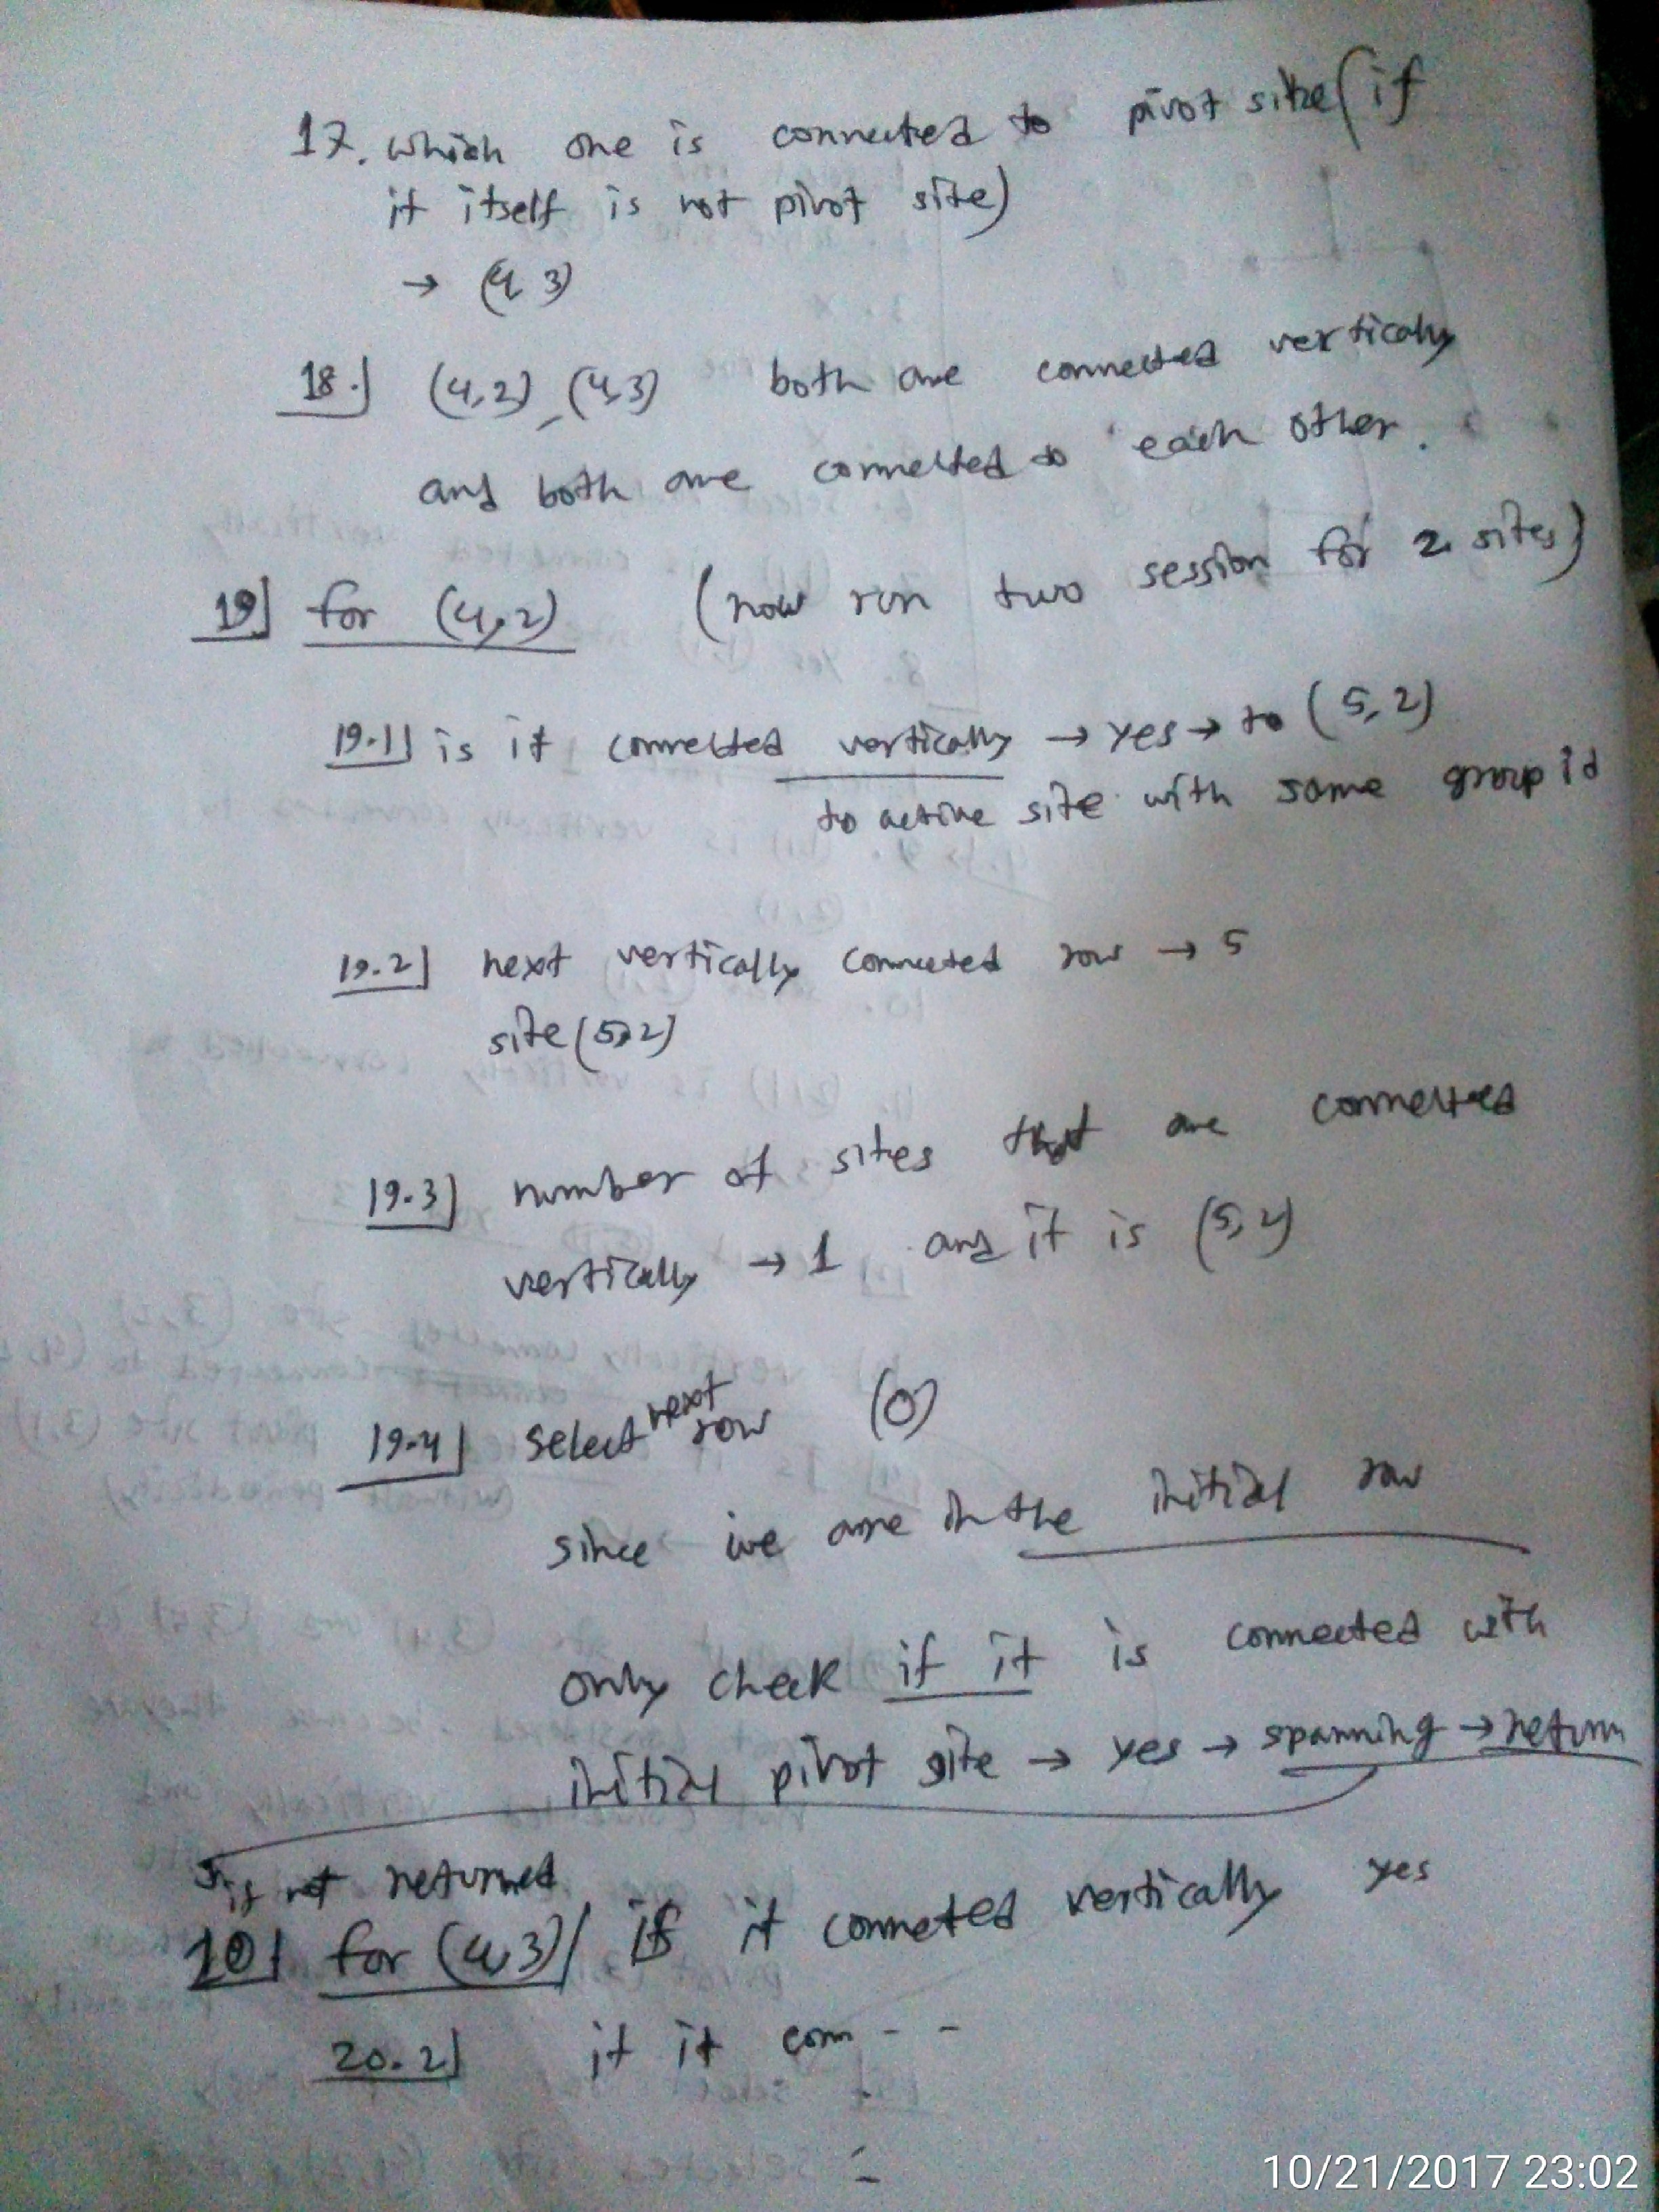 17. which one is connected to pivot site (if
it itself is not pivot site)
→ (4, 3)
18.] (4,2), (4,3) both are connected vertically
and both are connected to each other.
19] for (4,2) (now run two session for 2 sites)
19.1] is it connected vertically → yes → to (5, 2)
to active site with same group id
19.2] next vertically connected row → 5
site (5,2)
19.3] number of sites that are connected
vertically → 1 and it is (5,2)
19.4] select next row (0)
since we are in the initial row
only check if it is connected with
initial pivot site → yes → spanning → return
if not returned
for (4,3)/ if it conneted vertically yes
20.2] if it conn - -
10/21/2017 23:02